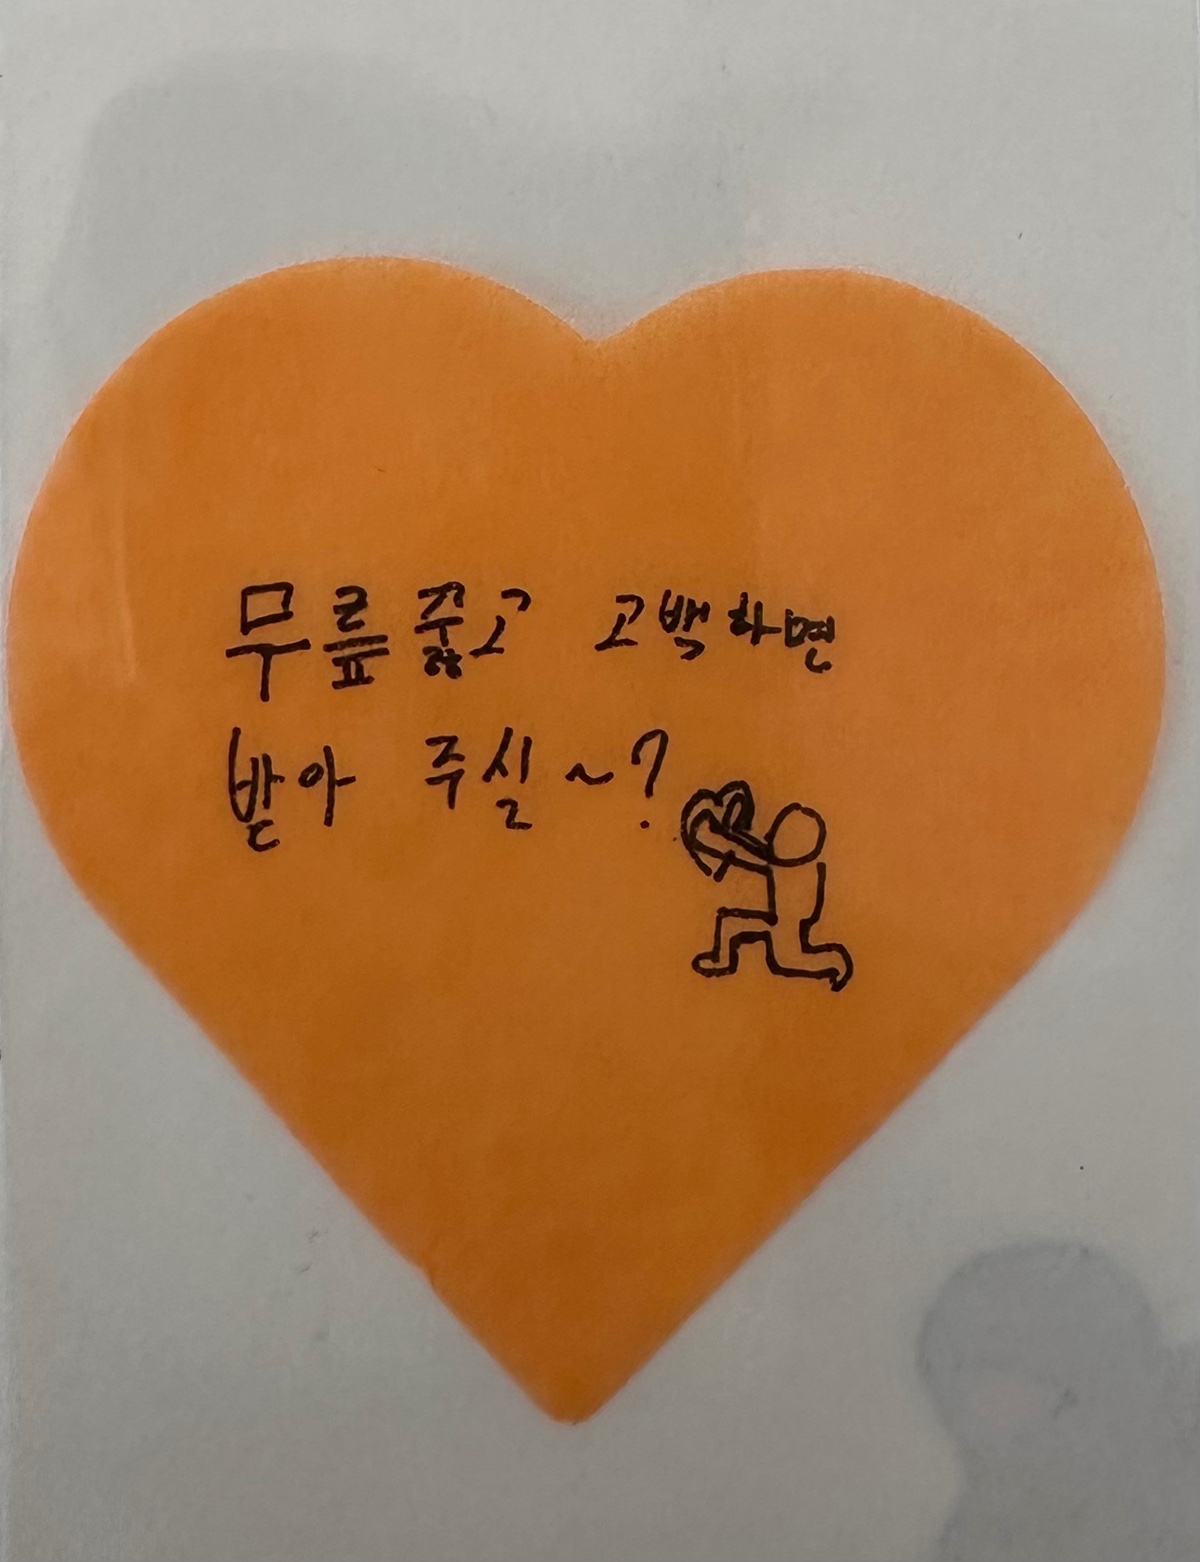 무릎꿇고 고백하면
받아 주실~?